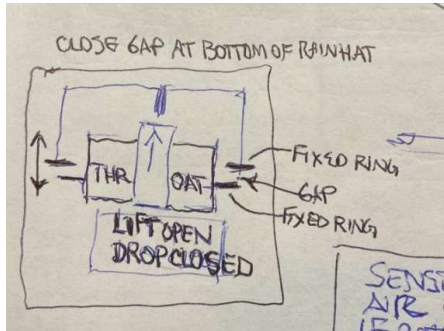 CLOSE GAP AT BOTTOM OF RAINHAT
FIXED RING
THR OAT
GAP
FIXED RING
LIFT OPEN
DROP CLOSED
SENS
AIR